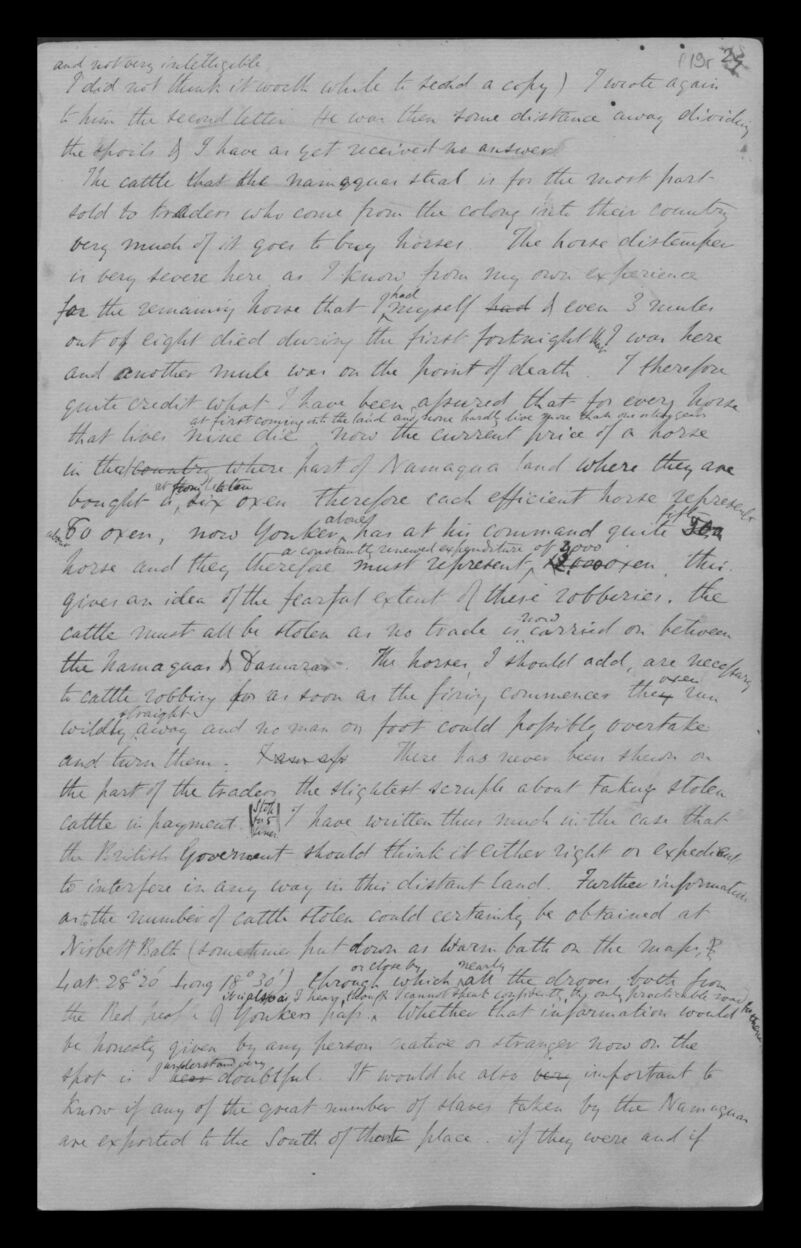 (19r 25
and not very intelligible
I did not think it worth while to send a copy) I wrote again
to him the second letter He was then some distance away dividing
the spoils & I have as yet received no answer
The cattle that the Namaquas steal is for the most part
sold to traders who come from the colony into their country
very much of it goes to buy horses. The horse distemper
is very severe here as I know from my own experience
for the remaining horse that I had myself had & even 3 mules
out of eight died during the first fortnight that I was here
and another mule was on the point of death. I therefore
quite credit what I have been assured that for every horse
at first coming into the land and none hardly live more than one or two years
that lives nine die now the current price of a horse
in the country where part of Namaqua land where they are
at from to ten
bought is six oxen therefore each efficient horse represents
about 60 oxen, now Yonker alone has at his command quite fifty
a constantly renewed expenditure of 3,000
horse and they therefore must represent oxen this
gives an idea of the fearful extent of these robberies. the
cattle must all be stolen as no trade is now carried on between
the Namaquas & Damaras. The horses, I should add, are necessary
to cattle robbing for as soon as the firing commences the oxen run
wildly straight away and no man on foot could possibly overtake
and turn them. There has never been shewn on
the part of the traders the slightest scruple about taking stolen
cattle in payment. I have written thus much in the case that
the British Government should think it either right or expedient
to interfere in any way in this distant land. Further information
as to the number of cattle stolen could certainly be obtained at
Nisbett Bath (sometimes put down as Warm bath on the maps,
Lat. 28° 20' Long 18° 30') through or close by which nearly all the droves both from
It is also as, I hear, though I cannot speak confidently, the only practicable road to the colony
the Red people & Yonkers pass. Whether that information would
be honestly given by any person native or stranger now on the
spot is I understand very doubtful. It would be also very important to
know if any of the great number of slaves taken by the Namaquas
are exported to the South of that place. if they were and if